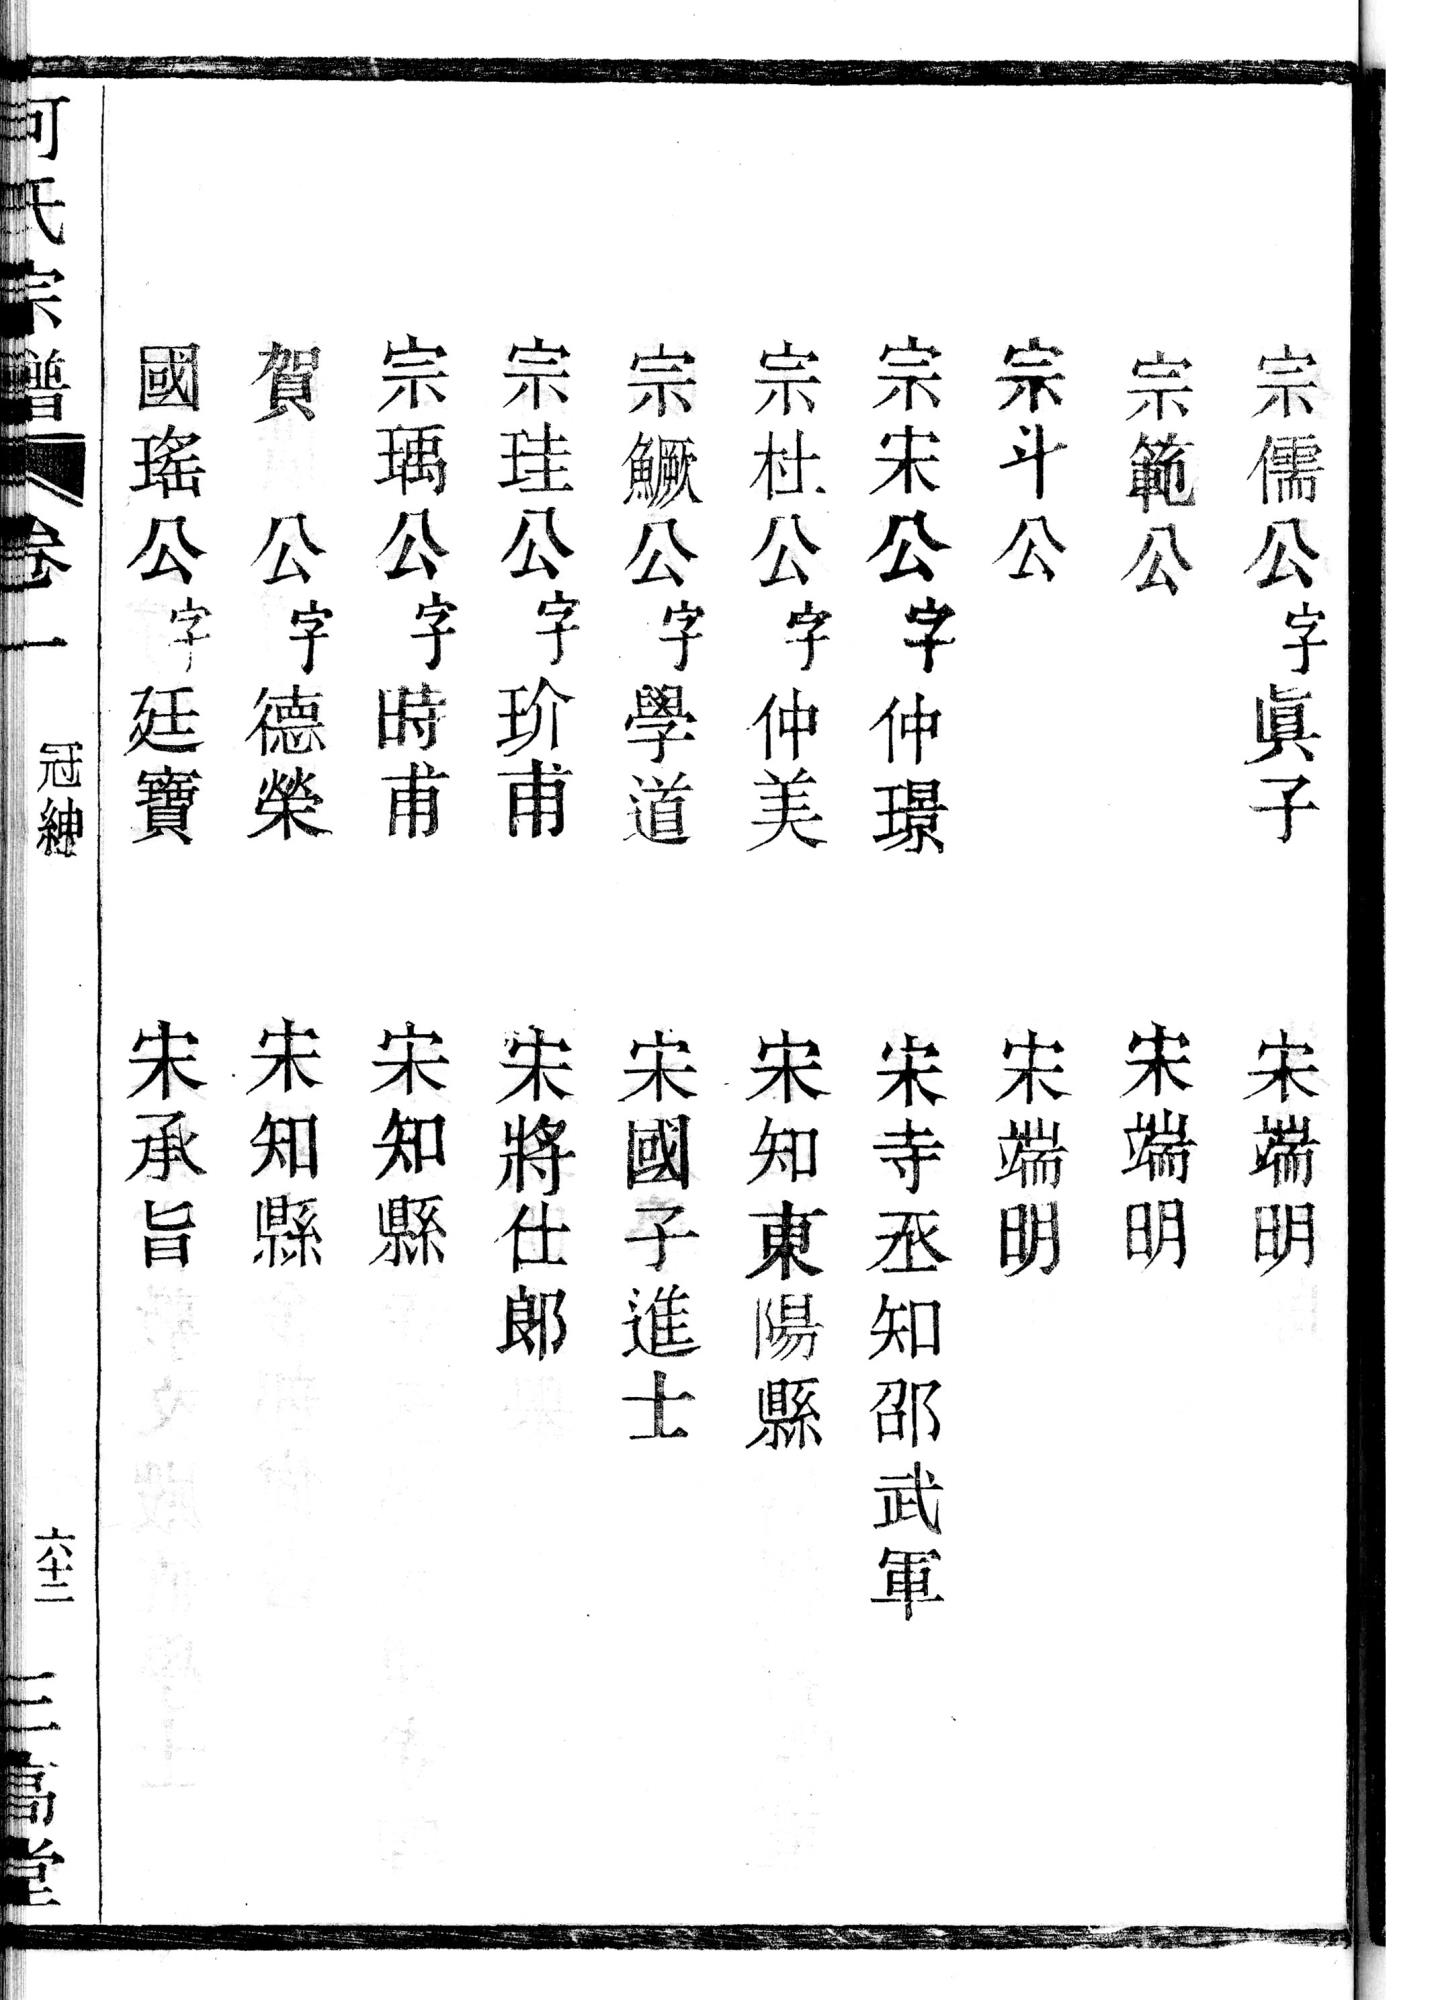 宗儒公字眞子 宋端明
宗範公 宋端明
宗斗公 宋端明
宗宋公字仲璟 宋寺丞知邵武軍
宗杜公字仲美 宋知東陽縣
宗鱖公字學道 宋國子進士
宗珪公字玠甫 宋將仕郎
宗瑀公字時甫 宋知縣
賀公字德榮 宋知縣
國瑤公字廷寶 宋承旨
何氏宗譜 卷一 冠紳 六十二 三高堂